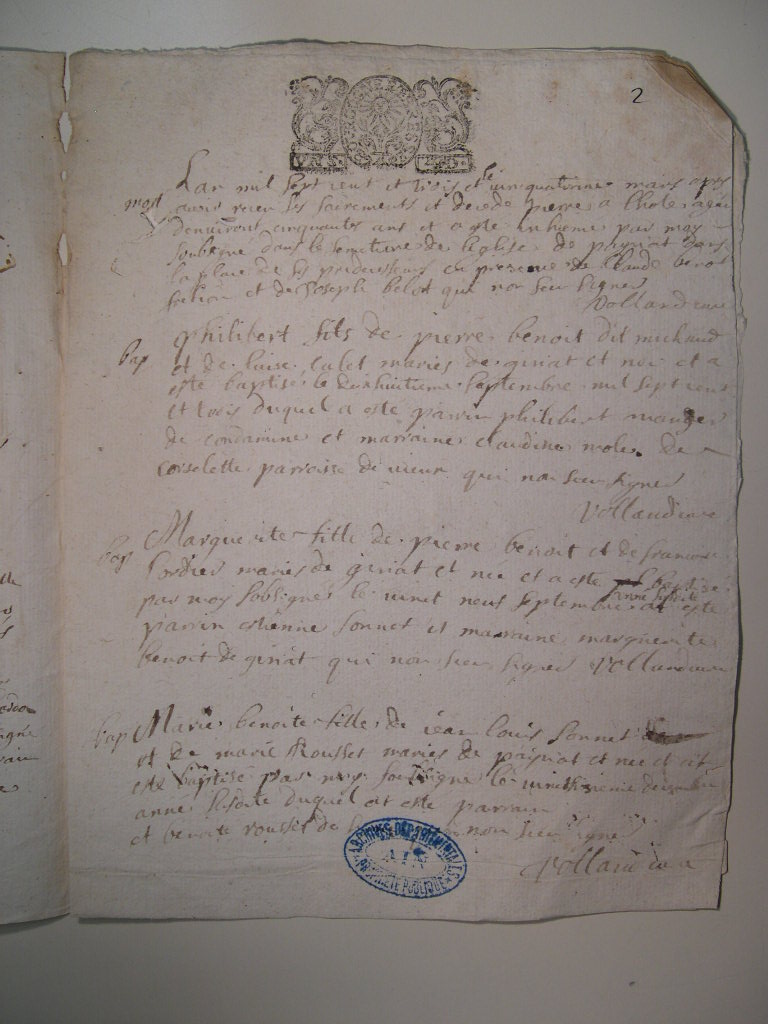 2
mort
Lan mil sept cent et trois et le vint quatrieme mars apres
avoir receu les sacrements et decede pierre a lhote agé
denviron cinquante ans et a este inhume par moy
soubsigne dans le semetiere de leglise de payriat dans
la place de ses predecesseurs en presence de Claude benoit
et de Joseph belot qui non sceu signer
Vollaud cure
bap
philibert fils de pierre benoit dit michaud
et de luise culet maries de giriat et nei et a
este baptise le dixhuitieme septembre mil sept cent
et trois duquel a este parrin philibert
de condamine et marraine claudine mole de
corselette parroisse de vieux qui non sceu signer
Vollaud cure
bap
Marguerite fille de pierre benoit et de francoise
maries de giriat et nee et a este baptisé
par moy soubsigné le vint neuf septembre anne susdite a este
parrin estienne sonnet et marraine marguerite
benoit de giriat qui non sceu signer Vollaud cure
bap
Marie benoite fille de iean louis sonnet
et de marie Rousset maries de payriat et nee et at
este baptise par moy soubsigne le decembre
anne susdite duquel at este parrain
et benoite rousset de non sceu signé
ARCHIVES DEPARTEMENTALES
AIN
PROPRIETE PUBLIQUE
Vollaud cure